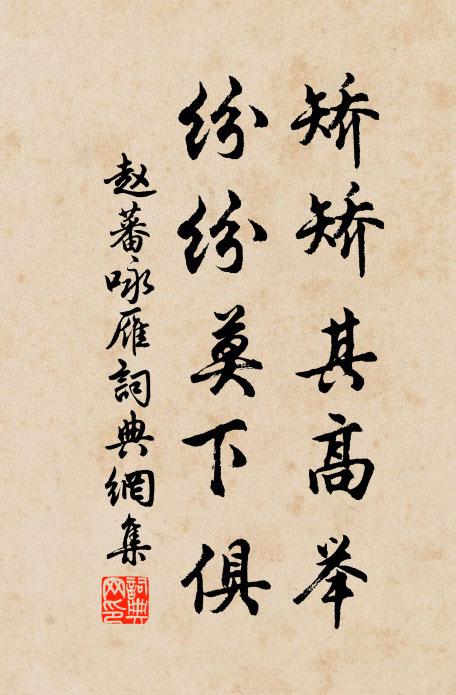 矫矫其高举
纷纷莫下俱
赵蕃咏雁詞典網集
詞典网印